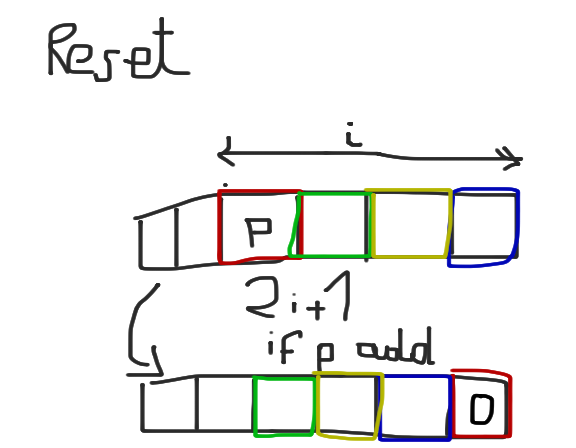 Reset
i
P
2i+1
if p add
0